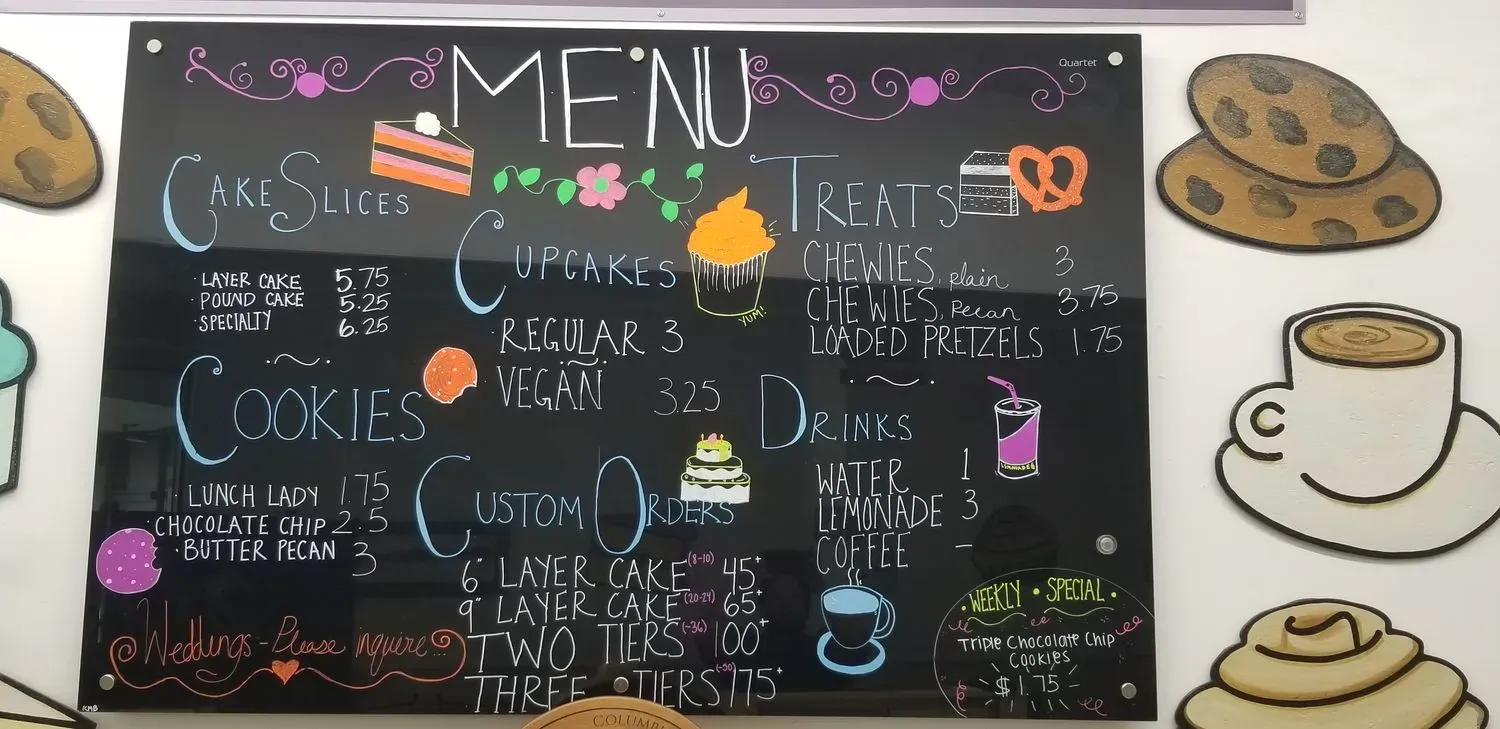 MENU
Quartet
CAKE SLICES
· LAYER CAKE 5.75
· POUND CAKE 5.25
· SPECIALTY 6.25
COOKIES
· LUNCH LADY 1.75
· CHOCOLATE CHIP 2.5
· BUTTER PECAN 3
Weddings - Please inquire...
KMB
CUPCAKES
YUM!
· REGULAR 3
· VEGAN 3.25
CUSTOM ORDERS
6" LAYER CAKE (8-10) 45+
9" LAYER CAKE (20-24) 65+
TWO TIERS (-36) 100+
THREE TIERS (-50) 175+
TREATS
CHEWIES, plain 3
CHEWIES, Pecan 3.75
LOADED PRETZELS 1.75
DRINKS
LEMONADE
WATER 1
LEMONADE 3
COFFEE -
· WEEKLY · SPECIAL ·
Triple Chocolate Chip
Cookies
- $1.75 -